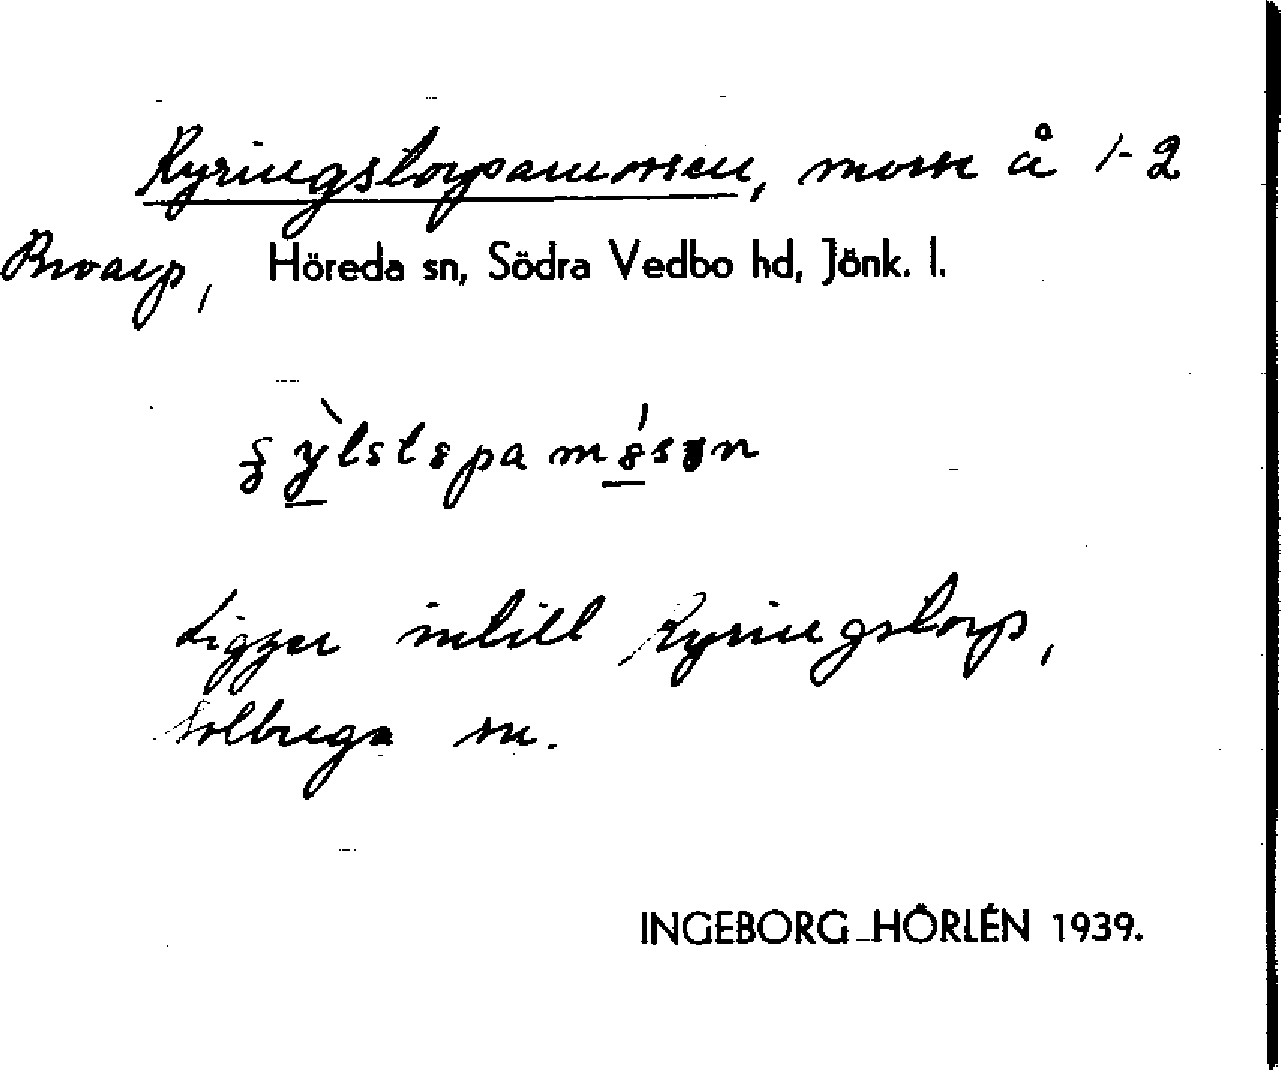 Kyringstorpamossen, mosse å 1-2
Broarp, Höreda sn, Södra Vedbo hd, Jönk. l.
Ligger intill Kyringstorp,
Solberga sn.
INGEBORG HÖRLÉN 1939.